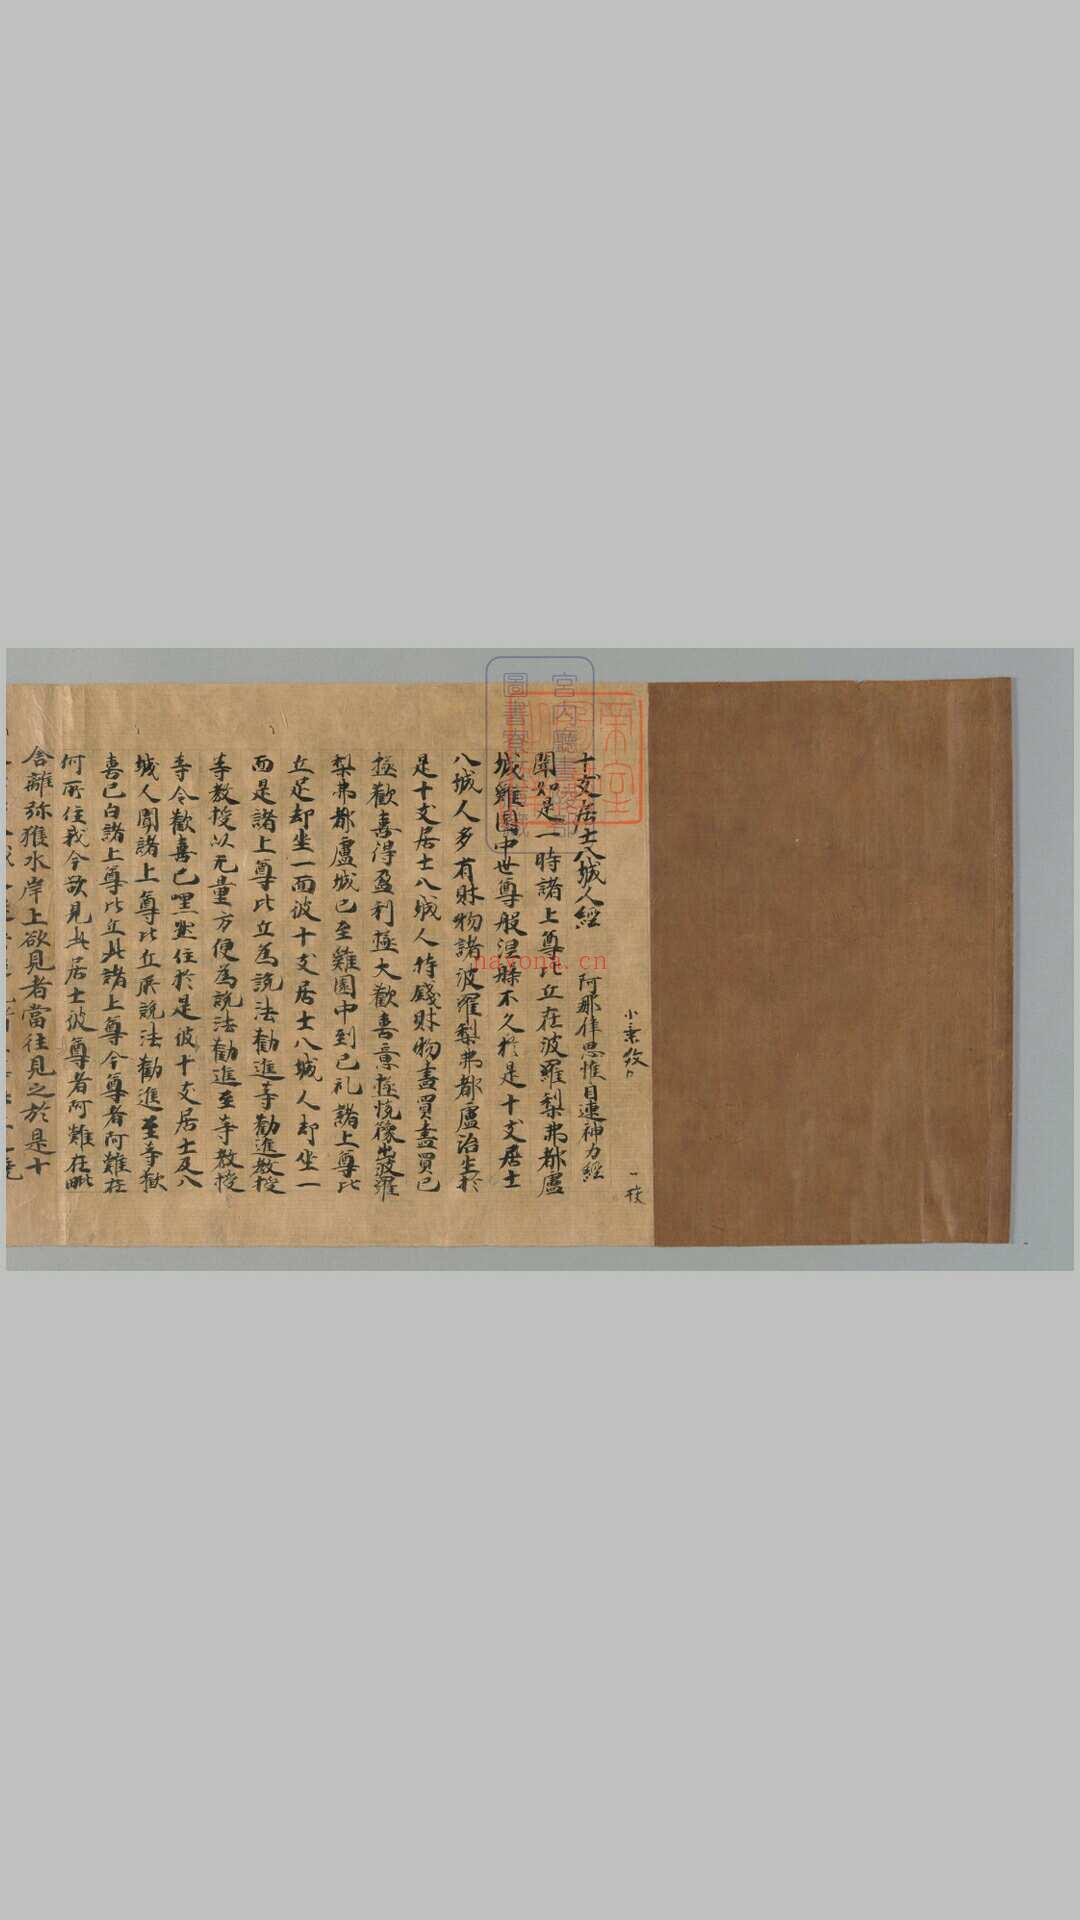 小乗
一校
十支居士八城人經 阿那律思惟目連神力經
聞如是一時諸上尊比丘在波羅梨弗都盧
城雞園中世尊般涅槃不久於是十支居士
八城人多有財物諸波羅梨弗都盧治生於
是十支居士八城人持錢財物盡買盡買已
極歡喜得盈利極大歡喜意極悅豫出波羅
梨弗都盧城已至雞園中到已礼諸上尊比
丘足却坐一面彼十支居士八城人却坐一
面是諸上尊比丘為說法勸進等勸進教授
等教授以无量方便為說法勸進至等教授
等令歡喜已默然住於是彼十支居士及八
城人聞諸上尊比丘所說法勸進至等歡
喜已白諸上尊比丘此諸上尊今尊者阿難在
何所住我今欲見此居士彼尊者阿難在毗
舍離弥猴水岸上欲見者當往見之於是十
宮内廳書陵部
圖書寮
帝室
nayona.cn